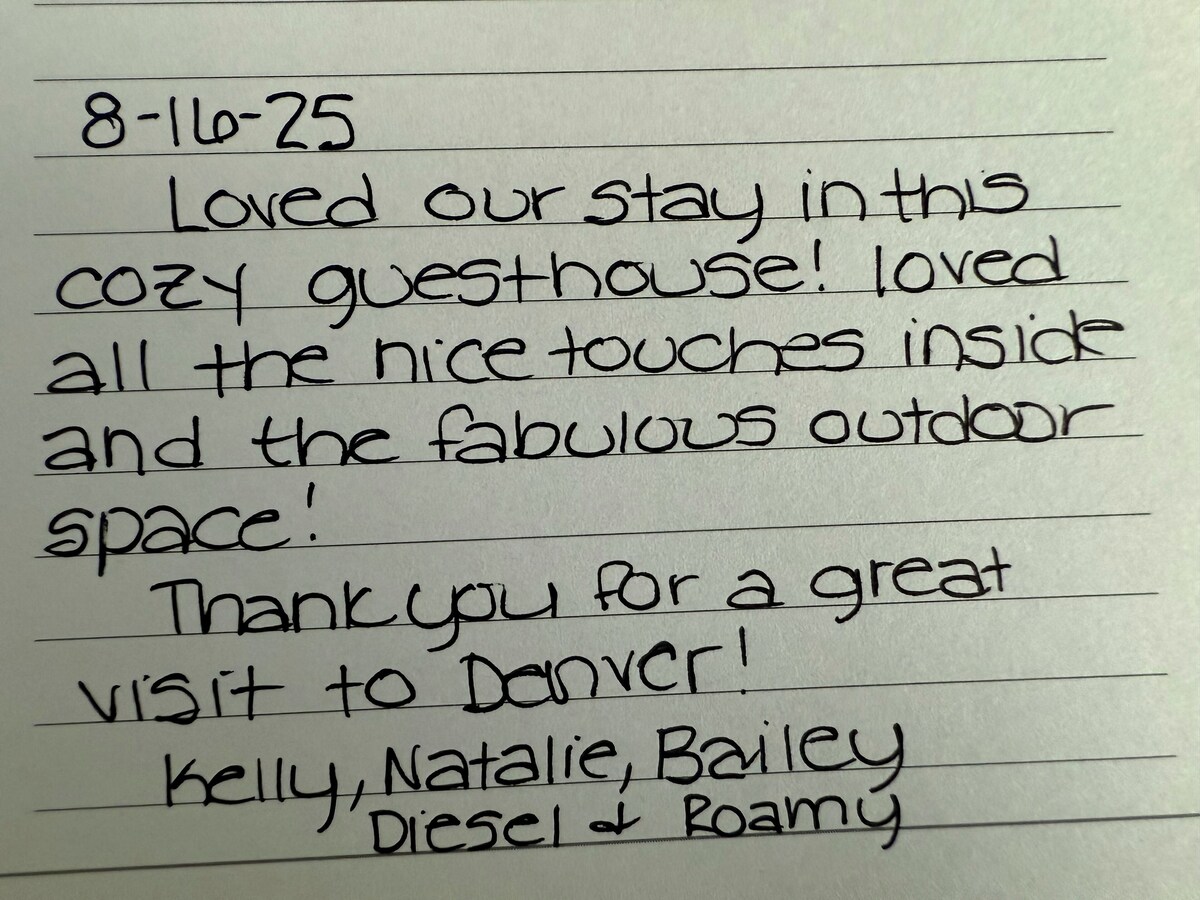 8-16-25
Loved our stay in this
cozy guesthouse! loved
all the nice touches inside
and the fabulous outdoor
space!
Thank you for a great
visit to Denver!
Kelly, Natalie, Bailey
Diesel & Roamy